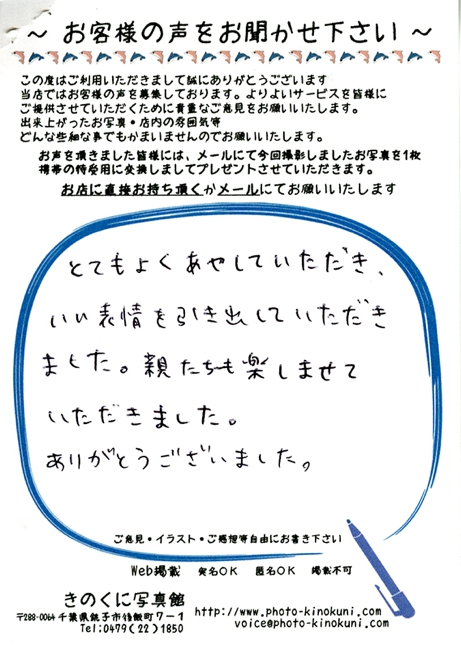 ～ お客様の声をお聞かせ下さい ～
この度はご利用いただきまして誠にありがとうございます
当店ではお客様の声を募集しております。よりよいサービスを皆様に
ご提供させていただくために貴重なご意見をお願いいたします。
出来上がったお写真・店内の雰囲気等
どんな些細な事でもかまいませんのでお願いいたします。
お声を頂きました皆様には、メールにて今回撮影しましたお写真を1枚
携帯の待受用に変換しましてプレゼントさせていただきます。
お店に直接お持ち頂くかメールにてお願いいたします
とてもよくあやしていただき、
いい表情を引き出していただき
ました。親たちも楽しませて
いただきました。
ありがとうございました。
ご意見・イラスト・ご感想等自由にお書き下さい
Web掲載 実名OK 匿名OK 掲載不可
きのくに写真館
〒288-0064 千葉県銚子市後飯町7-1
Tel:0479(22)1850
http://www.photo-kinokuni.com/
voice@photo-kinokuni.com/